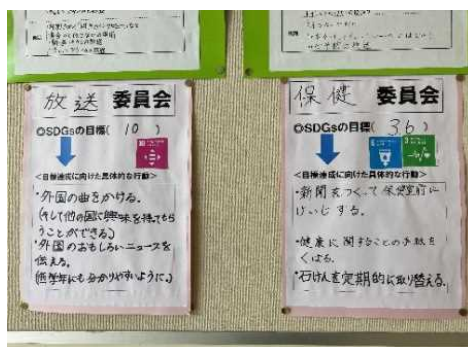 放送 委員会
◎SDGsの目標( 10 )
<目標達成に向けた具体的な行動>
・外国の曲をかける。
(そして他の国に興味を持ってもら
うことができる)
・外国のおもしろいニュースを
伝える。
(低学年にも分かりやすいように。)
保健 委員会
◎SDGsの目標( 3 6 )
<目標達成に向けた具体的な行動>
・新聞をつくって保健室前に
けいじする。
・健康に関することの手紙を
くばる。
・石けんを定期的に取り替える。